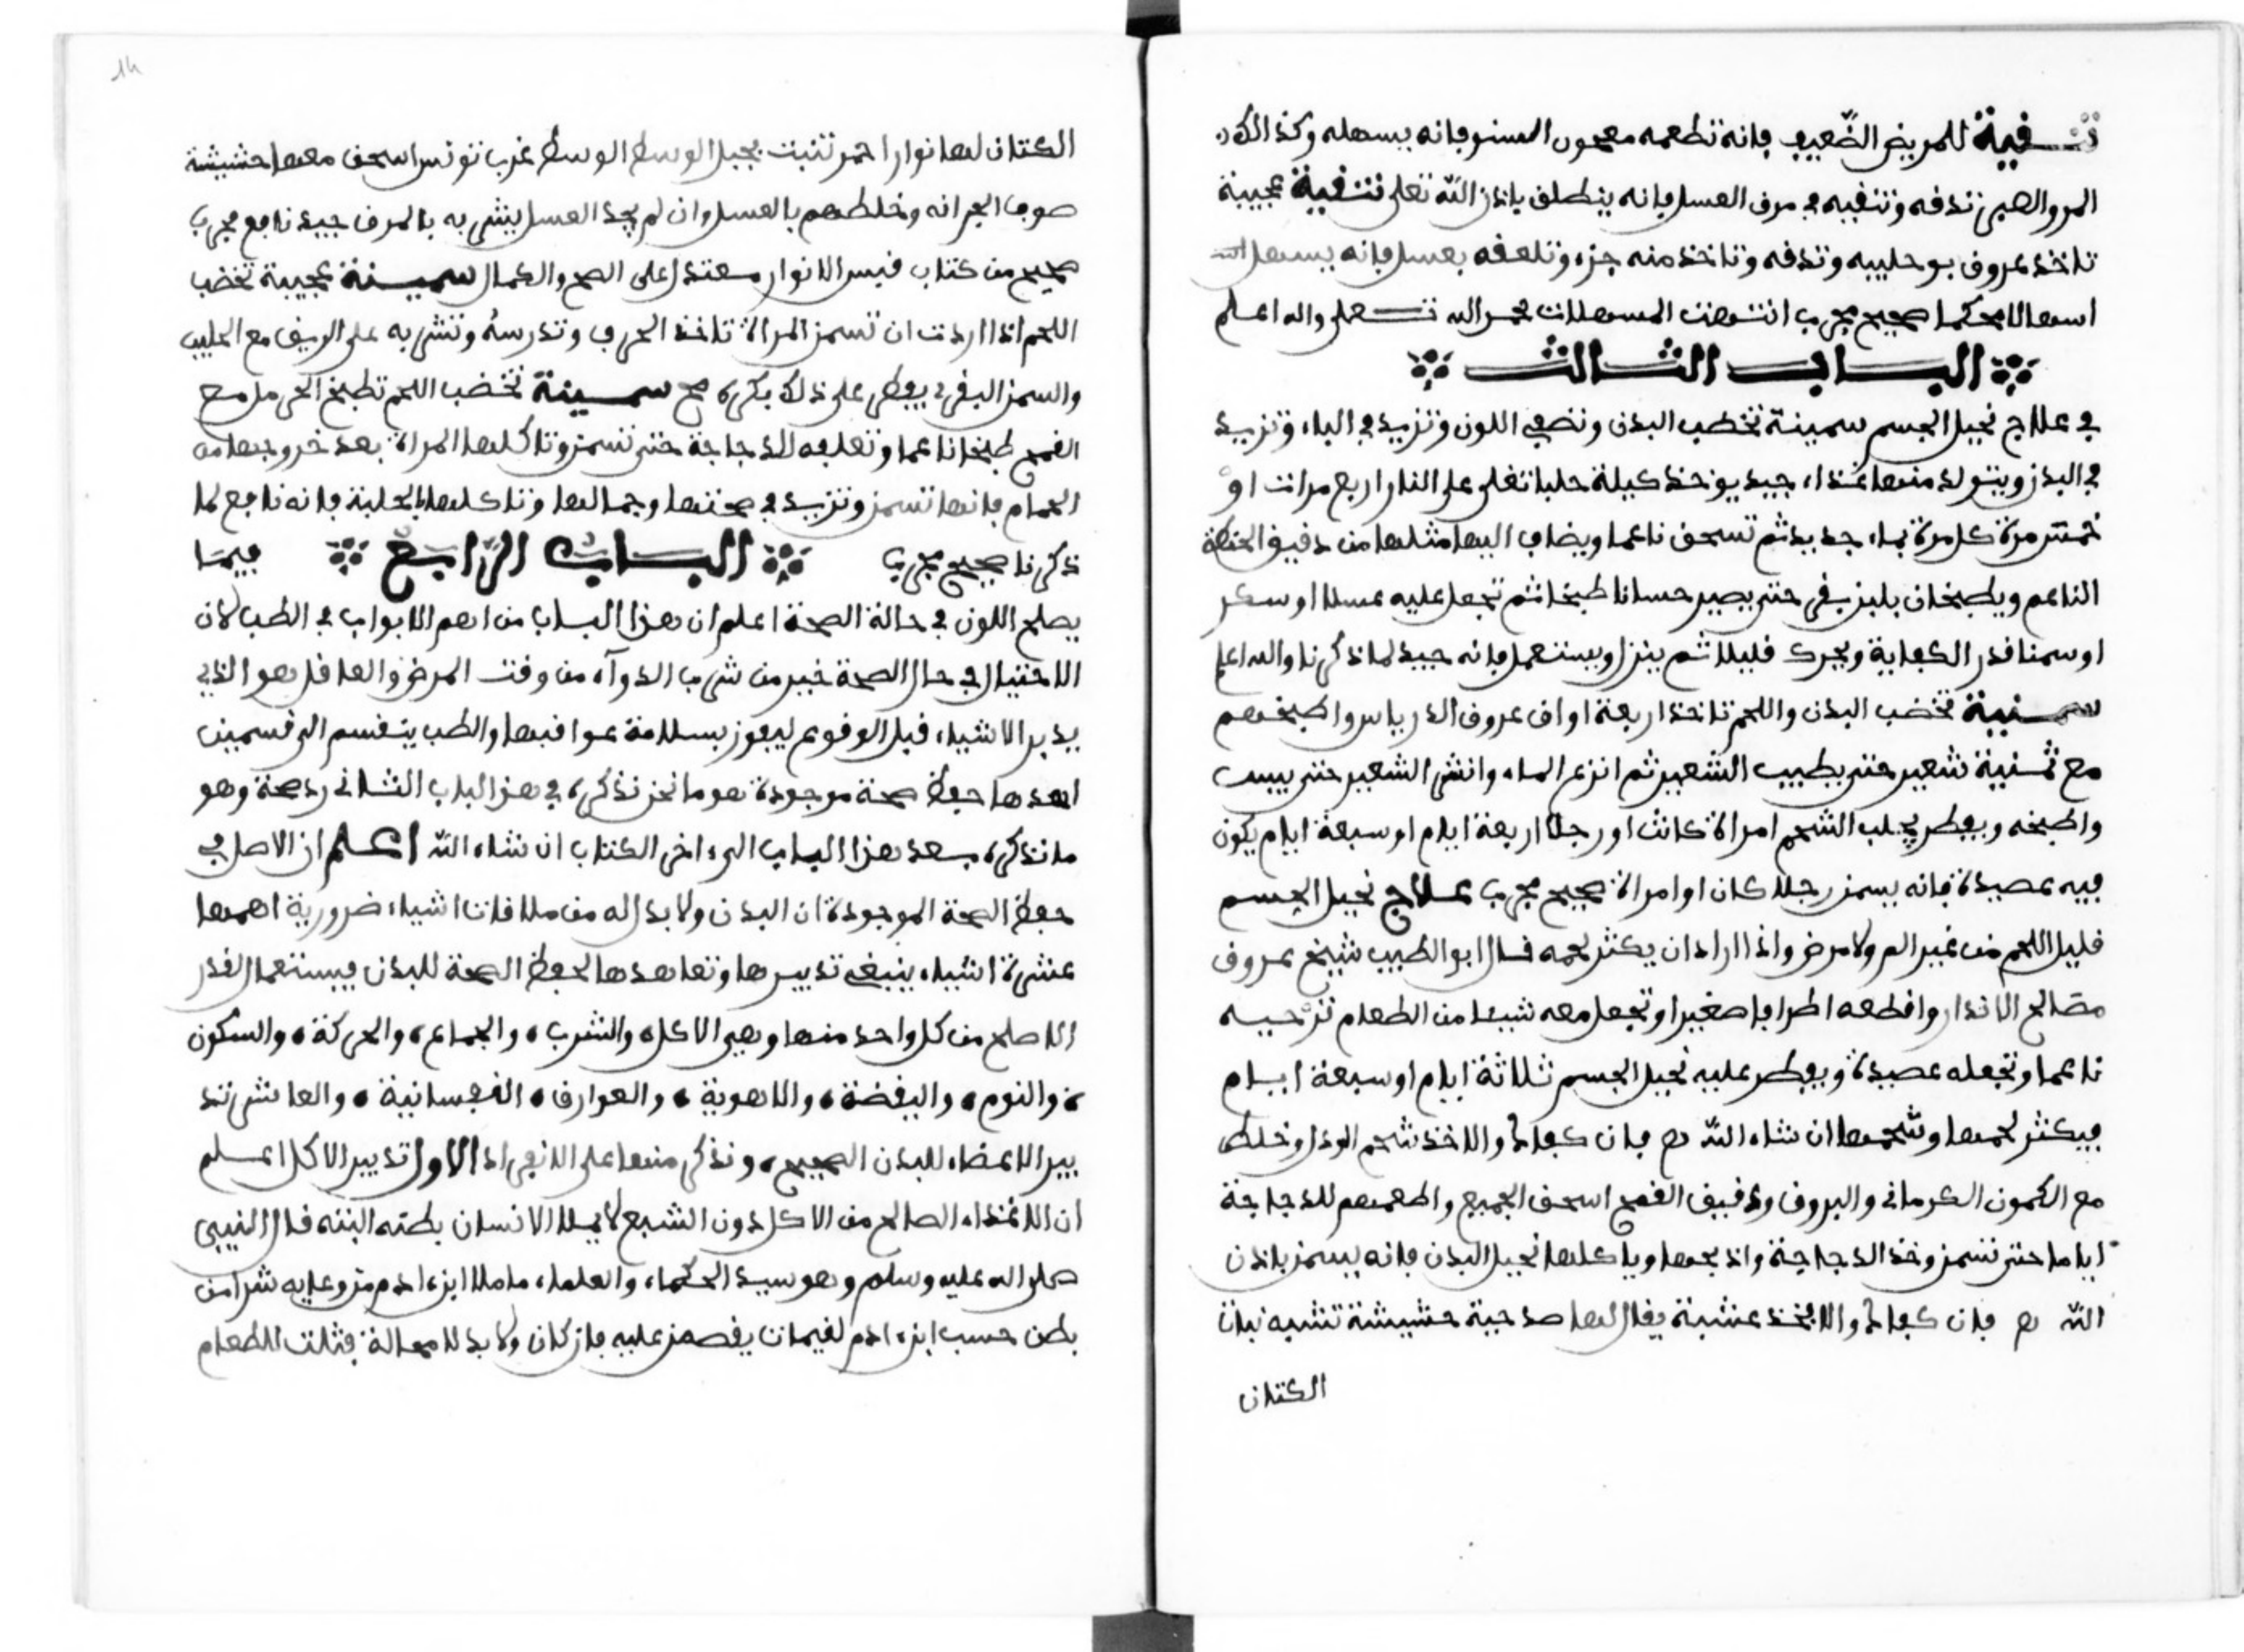 تنقية للمريض الضعيف فانه تطعمه معجون السنو فانه يسهله وكذالك
المر والصبر تدقه وتنقيه في مرق العسل فانه ينطلق باذن الله تعلى تنقية عجيبة
تاخذ عروق بوحليبه وتدقه وتاخذ منه جزء وتلعقه بعسل فانه يسهل
اسهالا محكما صحيح مجرب انتهت المسهلات بحمد الله تعلى والله اعلم
الباب الثالث
في علاج نحيل الجسم سمينة تخطب البدن وتصفي اللون وتزيد في الباء وتزيد
في البدن ويتولد منها غذاء جيد يوخذ كيلة حلبا تغلى على النار اربع مرات او
خمس مرة كل مرة بماء جديد ثم تسحق ناعما ويضاف اليها مثلها من دقيق الحنطة
الناعم ويطبخان بلبن بقري حتى يصير حسانا طبخا ثم تجعل عليه عسلا او سكر
او سمنا قدر الكفاية ويحرك قليلا ثم ينزل ويستعمل فانه جيد لما ذكرنا والله اعلم
سمنية تخضب البدن واللحم تاخذ اربعة اواق عروق الدرياس واطبخهم
مع ثمنية شعير حتى يطيب الشعير ثم انزع الماء وانشر الشعير حتى ييبس
واطبخه ويفطر بحلب الشحم امراة كانت او رجلا اربعة ايام او سبعة ايام يكون
فيه عصيدة فانه يسمن رجلا كان او امراة صحيح مجرب علاج نحيل الجسم
قليل اللحم من غير الم ولا مرض واذا اراد ان يكثر لحمه قال ابو الطبيب شيخ عروق
مصالح الانذار واقطعه اطرافا صغيرا وتجعل معه شيئا من الطعام ترحيه
ناعما وتجعله عصيدة ويفطر عليه نحيل الجسم ثلاثة ايام او سبعة ايام
فيكثر لحمها وشحمها ان شاء الله صح فان كفاك والا خذ شحم الودل وخلط
مع الكمون الكرماني والبروق ودقيق القمح اسحق الجميع واطعمهم للدجاجة
اياما حتى تسمن وخذ الدجاجة واذبحها وياكلها نحيل البدن فانه يسمن باذن
الله صح فان كفاك والا يخذ عشبة يقال لها صداحبة حشيشة تشبه نبات
الكتان
الكتان لها نوار احمر تنبت بجبل الوسط الوسط غرب تونس اسحق معها حشيشة
صوف الجرانه وخلطهم بالعسل وان لم يجد العسل ينشر به بالمرق جيد نافع مجرب
صحيح من كتاب قبس الانوار معتدل على الصح والكمال سمينة عجيبة تخضب
اللحم اذا اردت ان تسمن المراة تاخذ الحرف وتدرسه وتشربه على الريق مع الحليب
والسمن البقري يفطر على ذلك بكرة صح سمينة تخضب اللحم تطبخ الحرمل مع
القمح طبخا ناعما وتعلفه للدجاجة حتى تسمن وتاكلها المراة بعد خروجها من
الحمام فانها تسمن وتزيد في صحتها وجمالها وتاكلها بالحلبة فانه نافع لما
ذكرنا صحيح مجرب الباب الرابع فيما
يصلح اللون في حالة الصحة اعلم ان هذا الباب من اهم الابواب في الطب لان
الاحتيال في حال الصحة خير من شرب الدواء من وقت المرض والعاقل هو الذي
يدبر الاشياء قبل الوقوع ليفوز بسلامة عواقبها والطب ينقسم الى قسمين
احدها حفظ صحة موجودة هو ما نحن نذكره في هذا الباب الثاني رد صحة وهو
ما نذكره بعد هذا الباب الى اخر الكتاب ان شاء الله اعلم ان الاصل في
حفظ الصحة الموجودة ان البدن ولا بد له من ملاقات اشياء ضرورية اهمها
عشرة اشياء ينبغي تدبيرها وتعاهدها لحفظ الصحة للبدن فيستعمل القدر
الاصلح من كل واحد منها وهي الاكل، والشرب، والجماع، والحركة، والسكون
، والنوم، واليقضة، والاهوية، والعوارق، النفسانية، والعاشر تد
بير الاعضاء للبدن الصحيح، ونذكر منها على الانفراد الاول تدبير الاكل اعلم
ان الاغذاء الصالح من الاكل دون الشبع لا يملا الانسان بطنه البتة قال النبي
صلى الله عليه وسلم وهو سيد الحكماء والعلماء ما ملا ابن ادم من وعايه شرا من
بطن حسب ابن ادم لقيمات يقمن عليه فان كان ولا بد لا محالة فثلث للطعام